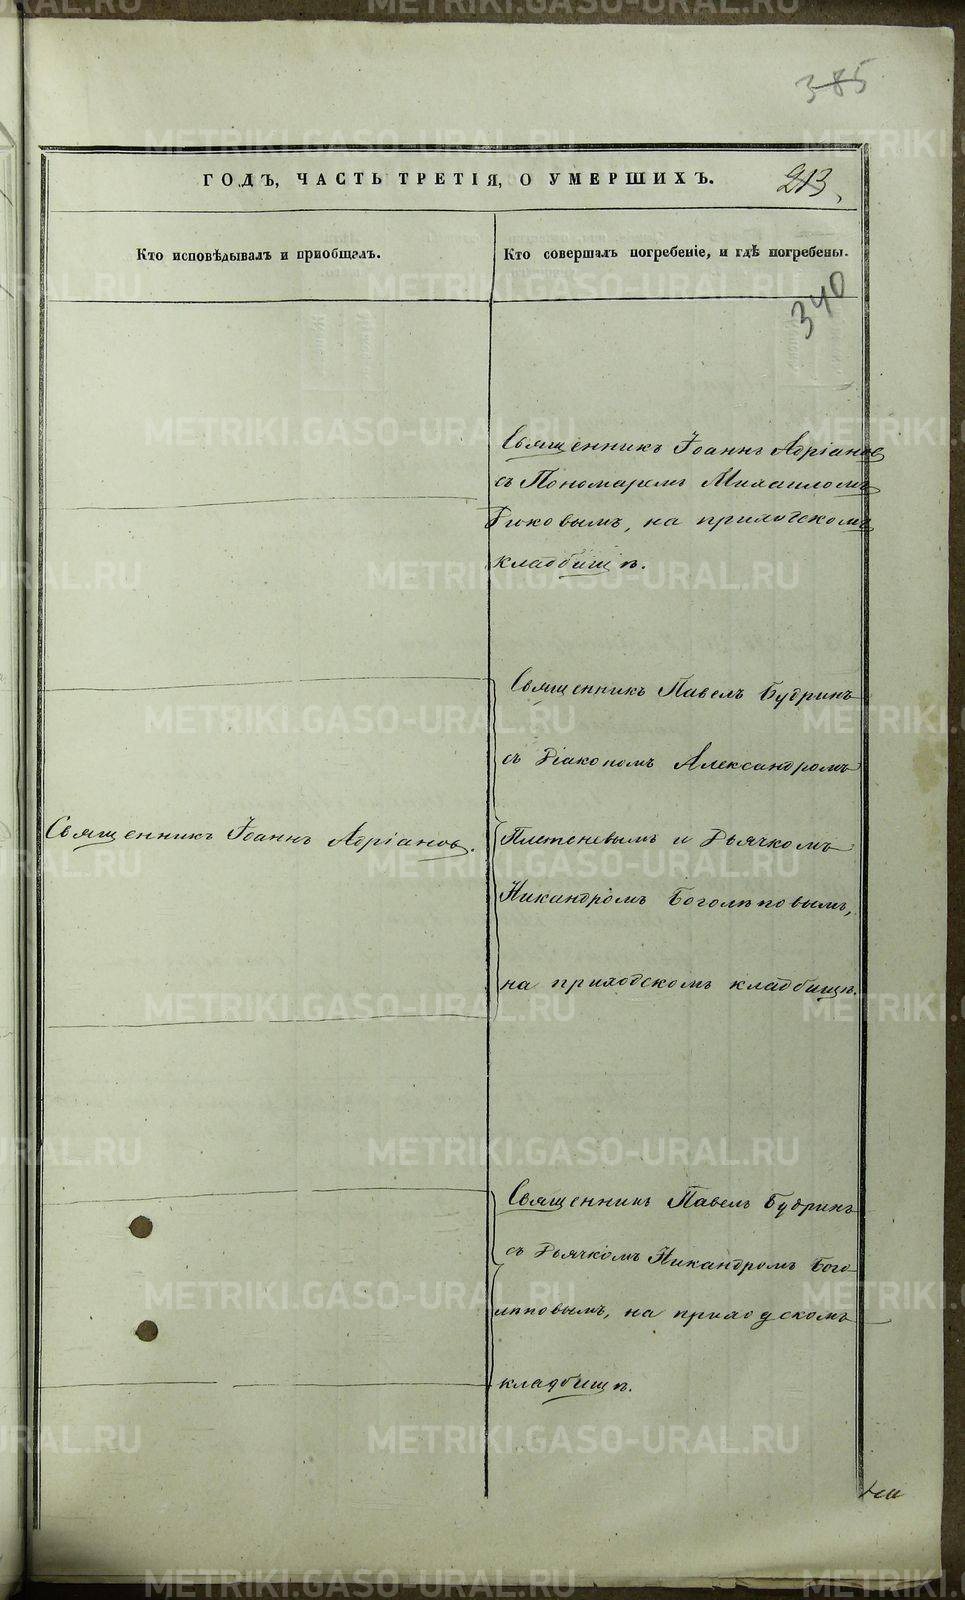 385
ГОДЪ, ЧАСТЬ ТРЕТІЯ, О УМЕРШИХЪ.
213,
Кто исповѣдывалъ и пріобщалъ.
Кто совершалъ погребеніе, и гдѣ погребены.
340
Священникъ Іоаннъ Адріановъ
съ Пономаремъ Михаиломъ
на приходскомъ
кладбищѣ.
Священникъ Павелъ Будринъ
съ Діакономъ Александромъ
Священникъ Іоаннъ Адріановъ.
Плетеневымъ и Дьячкомъ
Никандромъ Боголѣповымъ,
на приходскомъ кладбищѣ.
Священникъ Павелъ Будринъ
съ Дьячкомъ Никандромъ Бого
лѣповымъ, на приходскомъ
кладбищѣ.
METRIKI.GASO-URAL.RU